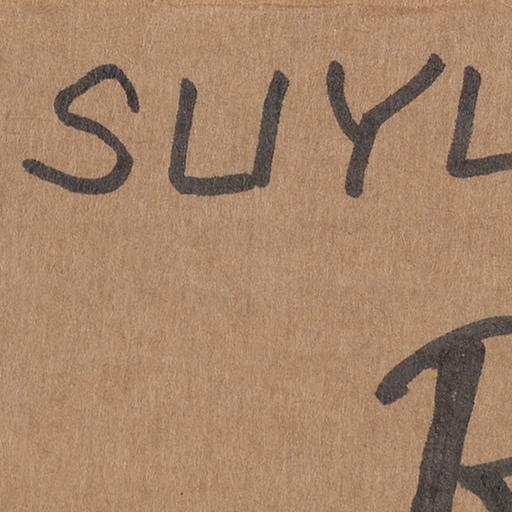 SUYL
R